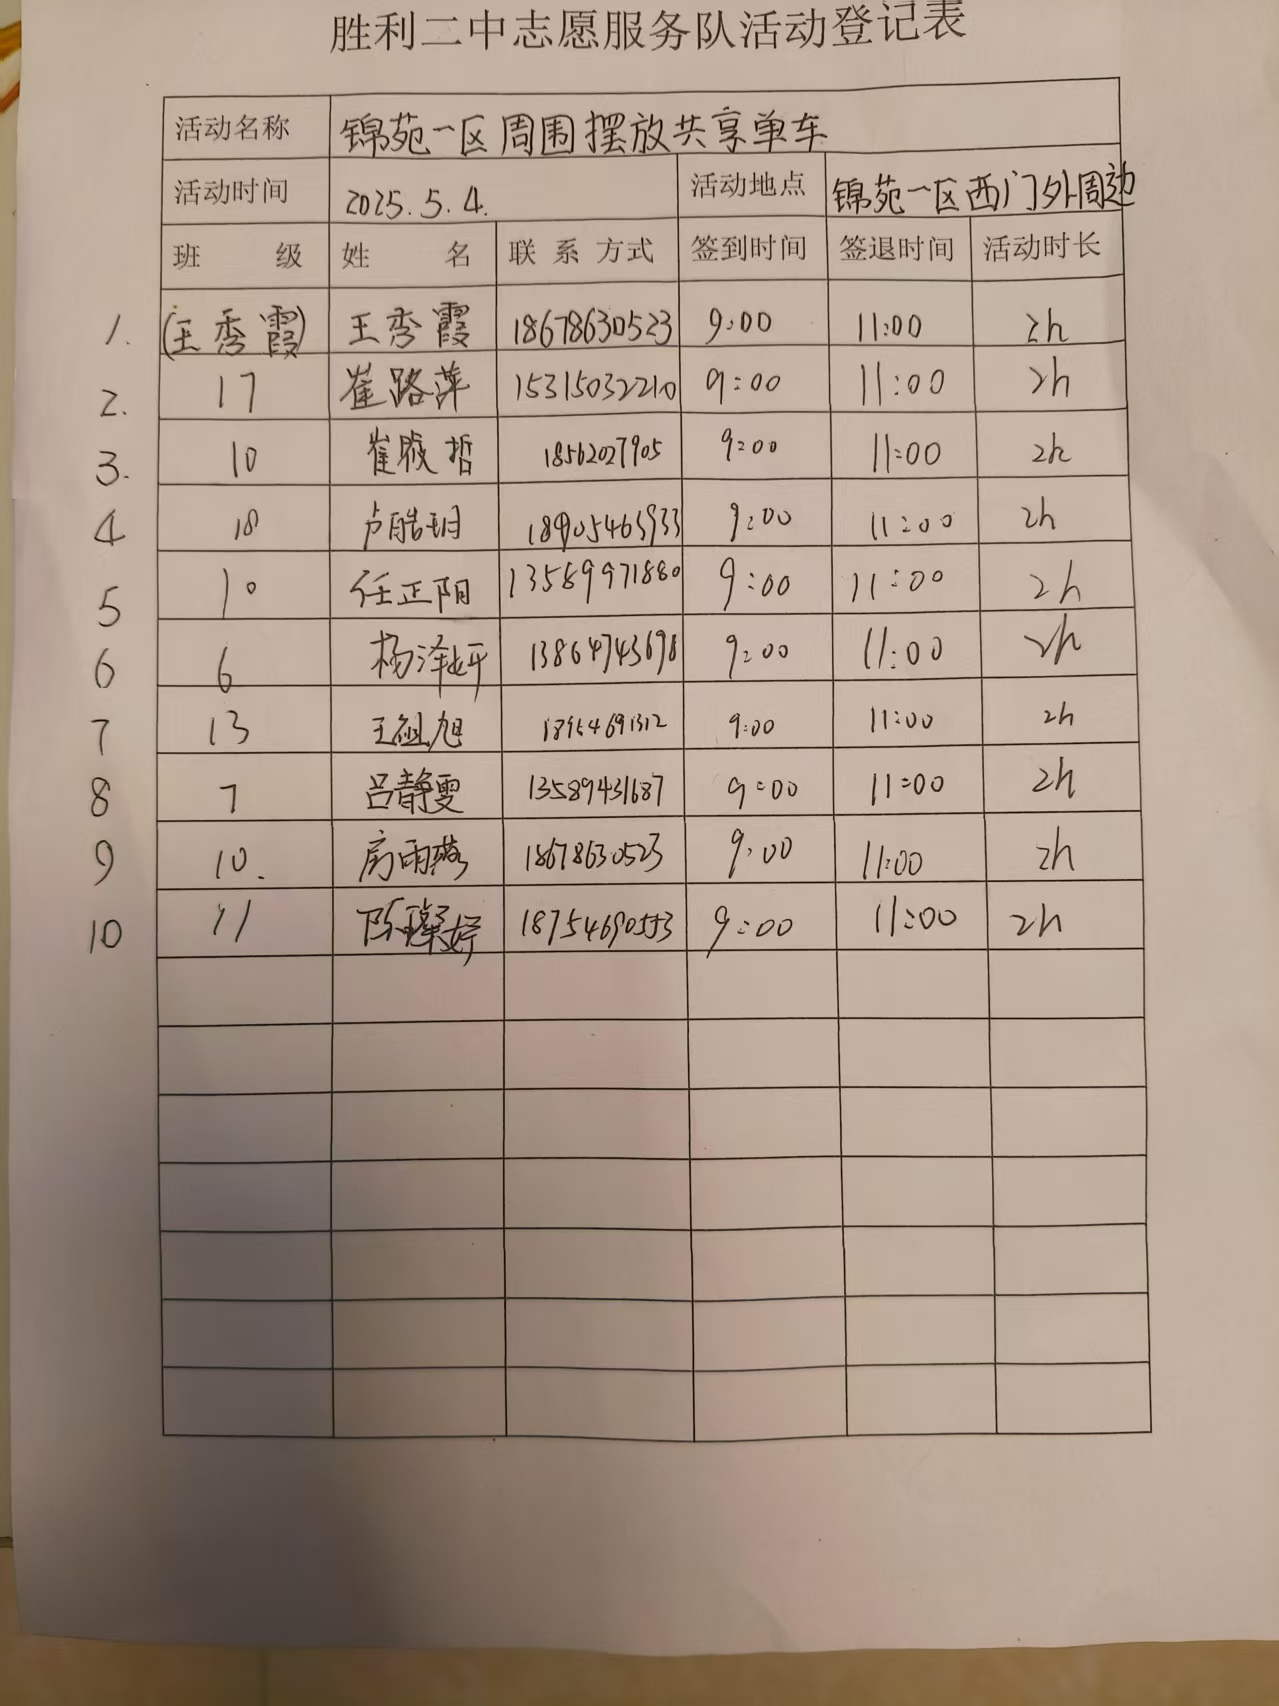 胜利二中志愿服务队活动登记表
活动名称 锦苑一区周围摆放共享单车
活动时间 2025.5.4. 活动地点 锦苑一区西门外周边
班 级 姓 名 联系方式 签到时间 签退时间 活动时长
1. (王秀霞) 王秀霞 18678630523 9:00 11:00 2h
2. 17 崔路萍 15315032210 9:00 11:00 2h
3. 10 18562027905 9:00 11:00 2h
4 18 18905463933 9:00 11:00 2h
5 10 任正阳 13589971880 9:00 11:00 2h
6 6 杨泽妍 13864743698 9:00 11:00 2h
7 13 18954691312 9:00 11:00 2h
8 7 吕静雯 13589431687 9:00 11:00 2h
9 10. 18678630523 9:00 11:00 2h
10 11 18754690553 9:00 11:00 2h